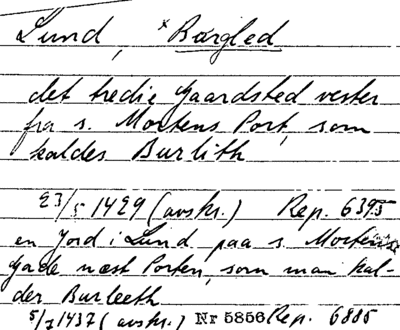 Lund, × Bårgled
det tredie Gaardsted vester
fra s. Mortens Port, som
kaldes Burlith
23/5 1429 (avskr.) Rep. 6395
en Jord i Lund paa s. Mortens
Gade næst Porten, som man kal-
der Burleeth
5/7 1437 (avskr.) Nr 5856 Rep. 6885